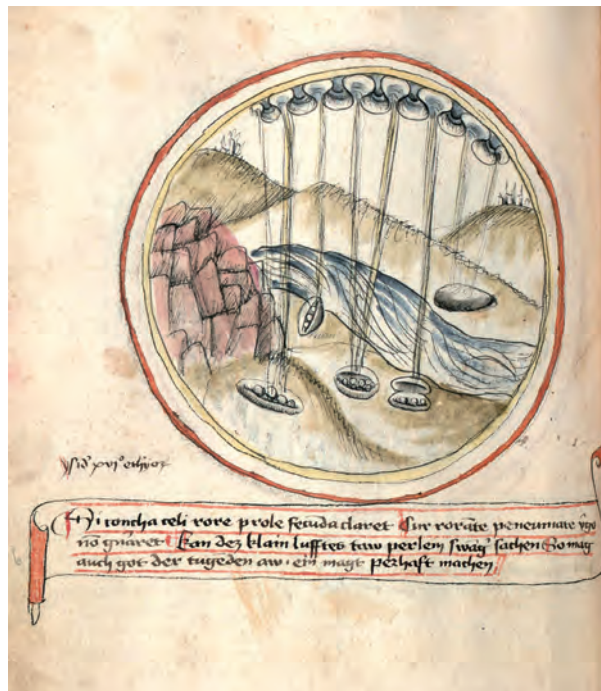 Isid xvi° ethyor
Si concha celi rore prole fecūda claret Cur rorāte pneumate ỹgo
nō gn̄aret Kan dez klain lufftes taw perlem swāg' sachen So mag
auch got der tugēden aw · ein magt perhaft machen